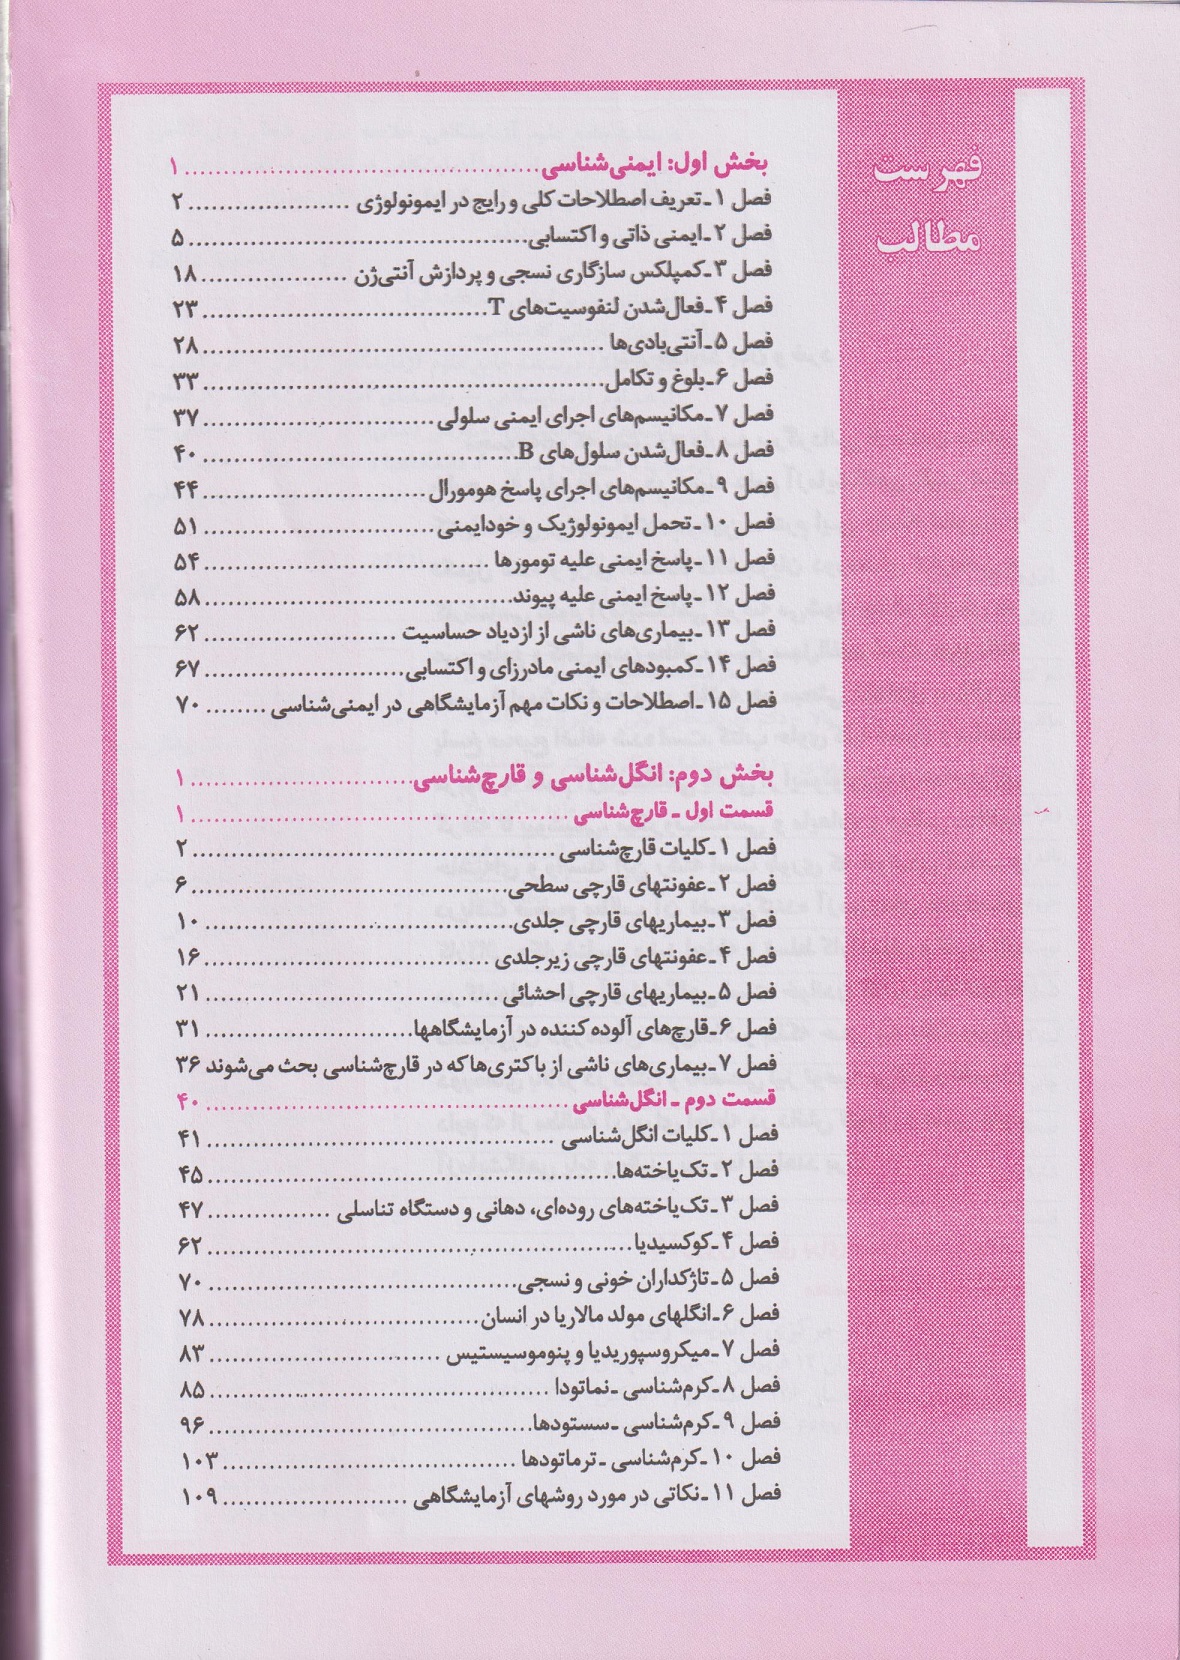 فهرست
مطالب
بخش اول: ایمنی‌شناسی ........ ۱
فصل ۱ ـ تعریف اصطلاحات کلی و رایج در ایمونولوژی ........ ۲
فصل ۲ ـ ایمنی ذاتی و اکتسابی ........ ۵
فصل ۳ ـ کمپلکس سازگاری نسجی و پردازش آنتی‌ژن ........ ۱۸
فصل ۴ ـ فعال‌شدن لنفوسیت‌های T ........ ۲۳
فصل ۵ ـ آنتی‌بادی‌ها ........ ۲۸
فصل ۶ ـ بلوغ و تکامل ........ ۳۳
فصل ۷ ـ مکانیسم‌های اجرای ایمنی سلولی ........ ۳۷
فصل ۸ ـ فعال‌شدن سلول‌های B ........ ۴۰
فصل ۹ ـ مکانیسم‌های اجرای پاسخ هومورال ........ ۴۴
فصل ۱۰ ـ تحمل ایمونولوژیک و خودایمنی ........ ۵۱
فصل ۱۱ ـ پاسخ ایمنی علیه تومورها ........ ۵۴
فصل ۱۲ ـ پاسخ ایمنی علیه پیوند ........ ۵۸
فصل ۱۳ ـ بیماری‌های ناشی از ازدیاد حساسیت ........ ۶۲
فصل ۱۴ ـ کمبودهای ایمنی مادرزای و اکتسابی ........ ۶۷
فصل ۱۵ ـ اصطلاحات و نکات مهم آزمایشگاهی در ایمنی‌شناسی ........ ۷۰
بخش دوم: انگل‌شناسی و قارچ‌شناسی ........ ۱
قسمت اول ـ قارچ‌شناسی ........ ۱
فصل ۱ ـ کلیات قارچ‌شناسی ........ ۲
فصل ۲ ـ عفونتهای قارچی سطحی ........ ۶
فصل ۳ ـ بیماریهای قارچی جلدی ........ ۱۰
فصل ۴ ـ عفونتهای قارچی زیرجلدی ........ ۱۶
فصل ۵ ـ بیماریهای قارچی احشائی ........ ۲۱
فصل ۶ ـ قارچ‌های آلوده کننده در آزمایشگاهها ........ ۳۱
فصل ۷ ـ بیماری‌های ناشی از باکتری‌ها که در قارچ‌شناسی بحث می‌شوند ۳۶
قسمت دوم ـ انگل‌شناسی ........ ۴۰
فصل ۱ ـ کلیات انگل‌شناسی ........ ۴۱
فصل ۲ ـ تک‌یاخته‌ها ........ ۴۵
فصل ۳ ـ تک‌یاخته‌های روده‌ای، دهانی و دستگاه تناسلی ........ ۴۷
فصل ۴ ـ کوکسیدیا ........ ۶۲
فصل ۵ ـ تاژکداران خونی و نسجی ........ ۷۰
فصل ۶ ـ انگلهای مولد مالاریا در انسان ........ ۷۸
فصل ۷ ـ میکروسپوریدیا و پنوموسیستیس ........ ۸۳
فصل ۸ ـ کرم‌شناسی ـ نماتودا ........ ۸۵
فصل ۹ ـ کرم‌شناسی ـ سستودها ........ ۹۶
فصل ۱۰ ـ کرم‌شناسی ـ ترماتودها ........ ۱۰۳
فصل ۱۱ ـ نکاتی در مورد روشهای آزمایشگاهی ........ ۱۰۹